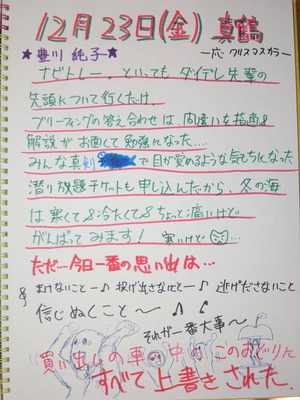 12月23日(金) 真鶴
★豊川 純子★ 一応クリスマスカラー
ナビトレー。といってもダイテレ先輩の
先頭について行くだけ。
ブリーフィングの答え合わせは、間違いな指商&
解説がお面くて勉強になった....
みんな真剣 で目が覚めるような気もちになった
潜り放題チケットも申し込んたから、冬の海
は寒くて&冷たくて&ちょっと痛いけど
がんばってみます! 寒いけど ...
ただ…今日一番の思い出は…
まけないこと〜♪ 投げ出さなにと〜♪ 逃げださないこと
信じぬくこと〜♪ ♪
それが一番大事〜
買い出しの車の中の このおどりに
すべて上書きされた.